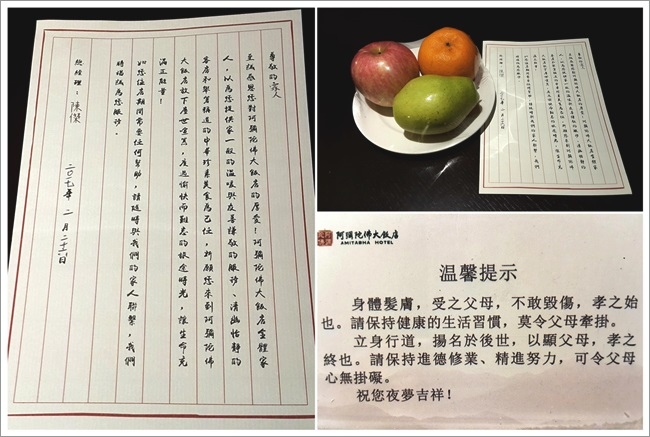 尊敬的家人
至誠感恩您對阿彌陀佛大飯店的厚愛！阿彌陀佛大飯店全體家
人，以為您提供家一般的溫暖與友善謙敬的服務、清幽怡靜的
客房和聲譽稱道的中華珍素美食為己任，祈願您來到阿彌陀佛
大飯店放下塵世喧囂，度過愉快而難忘的旅途時光，讓生命充
滿正能量！
如您住店期間需要任何幫助，請隨時與我們的家人聯繫，我們
時竭誠為您服務。
總經理：陳傑
二〇一七年 二月二十六日
阿彌陀佛大飯店
AMITABHA HOTEL
温馨提示
身體髮膚，受之父母，不敢毀傷，孝之始
也。請保持健康的生活習慣，莫令父母牽掛。
立身行道，揚名於後世，以顯父母，孝之
終也。請保持進德修業、精進努力，可令父母
心無掛礙。
祝您夜夢吉祥！